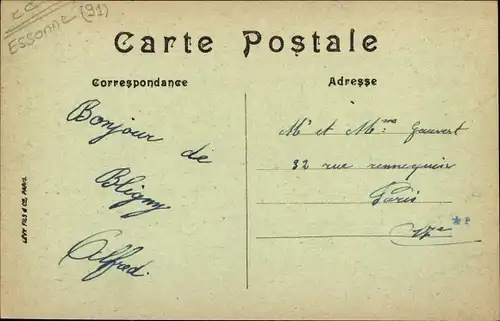 CC
ESSONNE (91)
Carte Postale
Correspondance
Adresse
Bonjour
de
Bligny
Alfred.
Mr et Mme: Gauvert
32 rue rennequin
Paris
17e
LÉVY FILS & CIE, PARIS